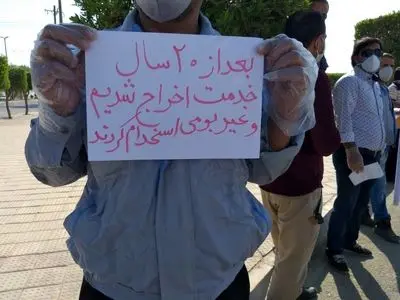 بعد از ۲۰ سال
خدمت اخراج شدیم
و غیر بومی استخدام کردند